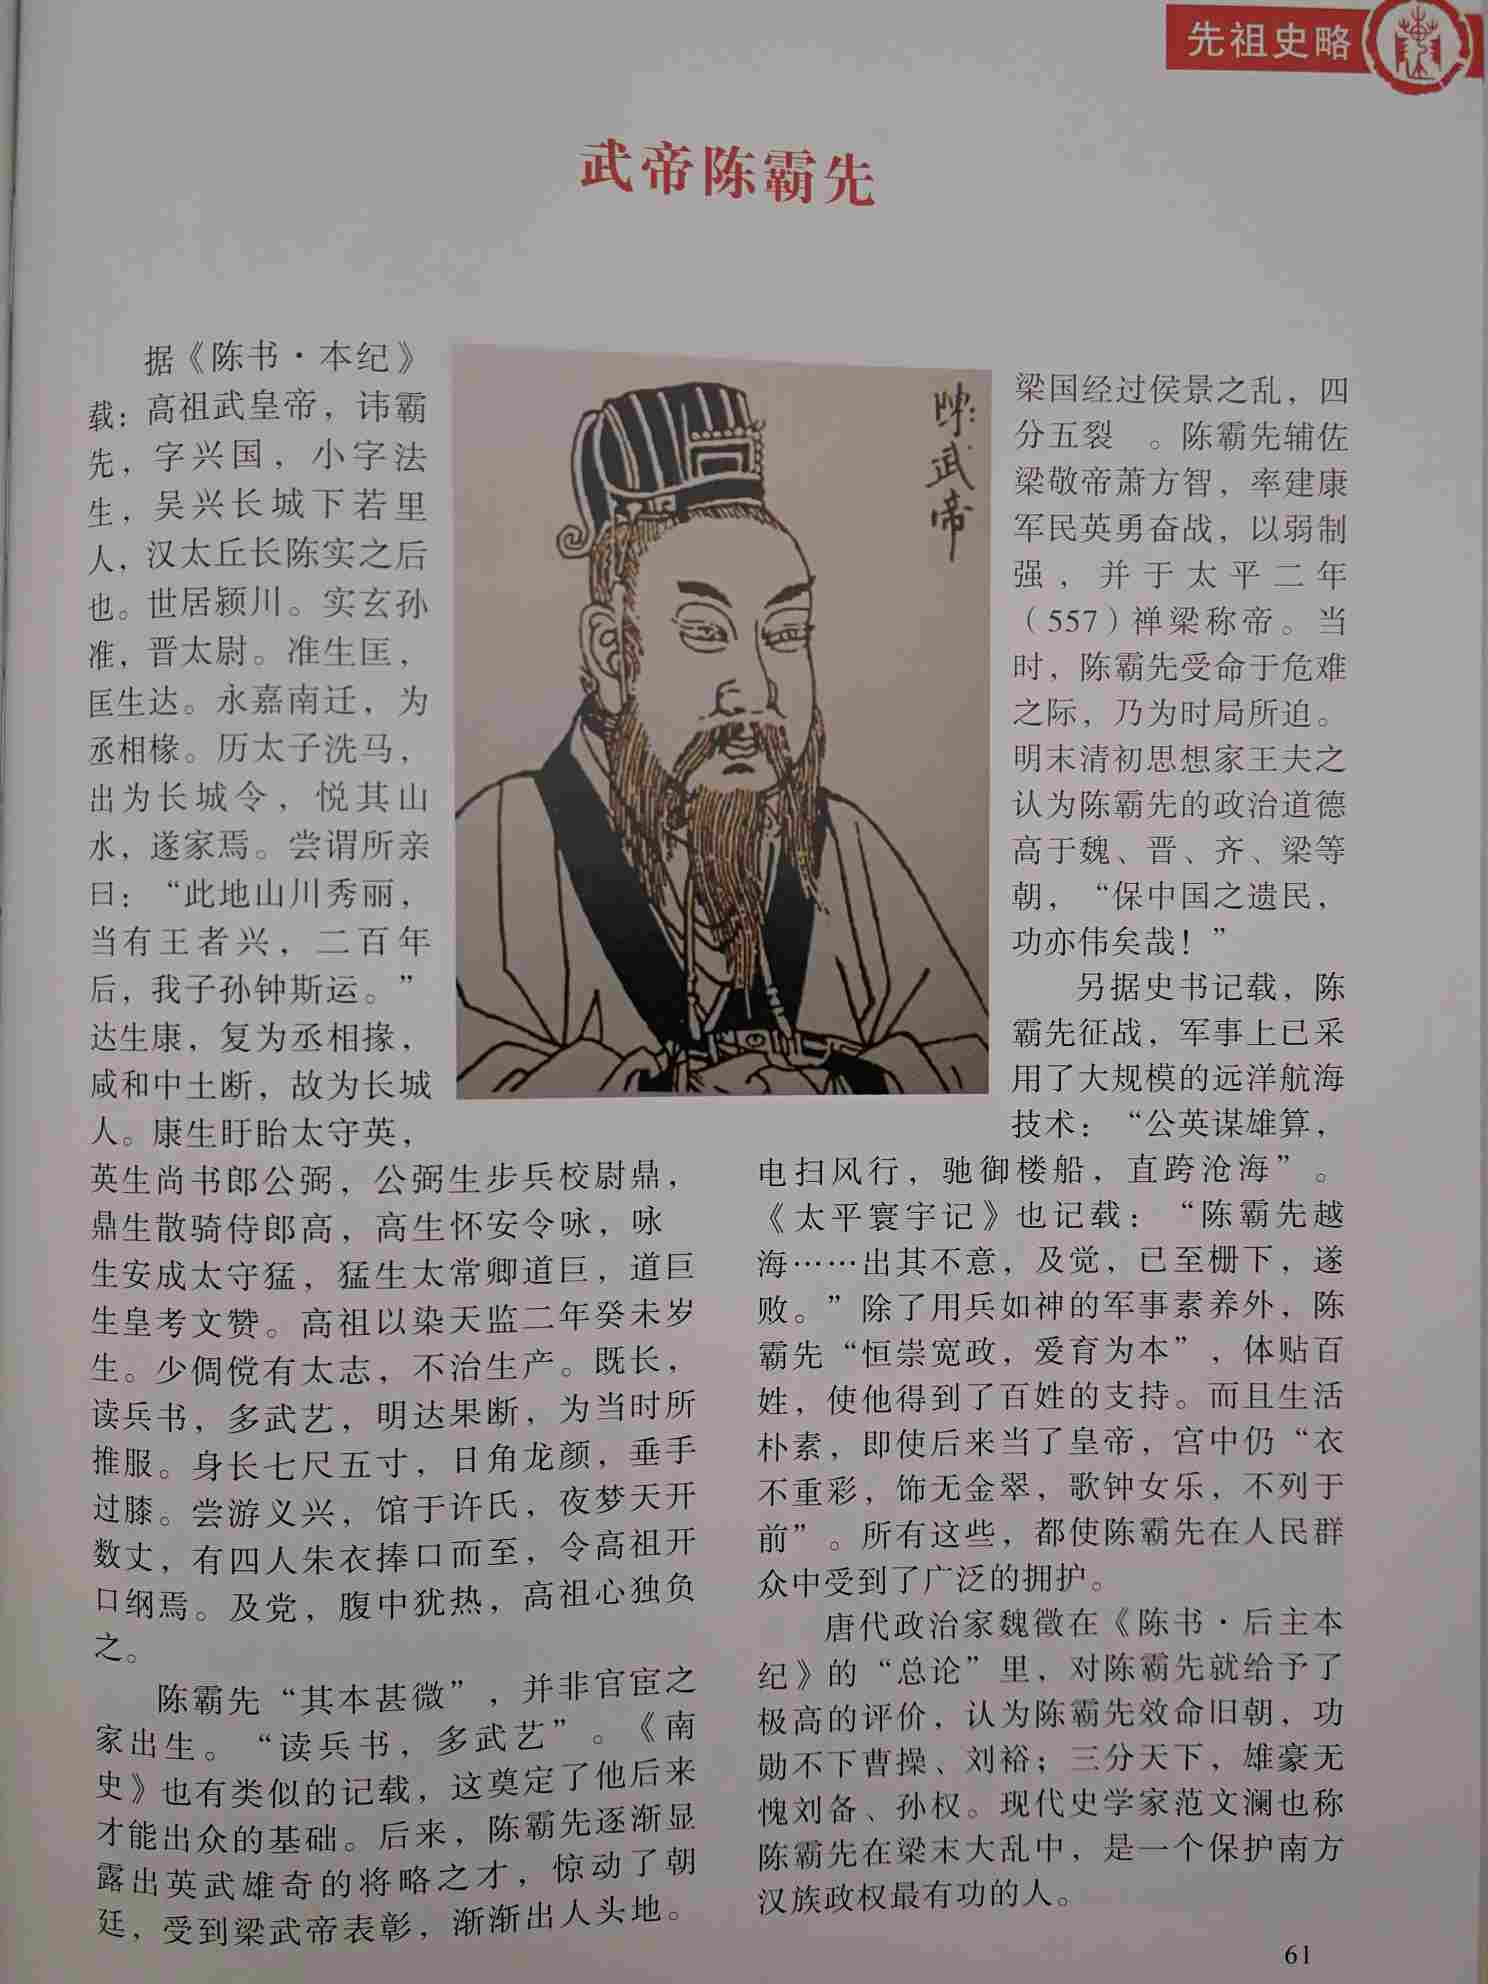 先祖史略
武帝陈霸先
据《陈书·本纪》
载：高祖武皇帝，讳霸
先，字兴国，小字法
生，吴兴长城下若里
人，汉太丘长陈实之后
也。世居颍川。实玄孙
准，晋太尉。准生匡，
匡生达。永嘉南迁，为
丞相椽。历太子洗马，
出为长城令，悦其山
水，遂家焉。尝谓所亲
曰：“此地山川秀丽，
当有王者兴，二百年
后，我子孙钟斯运。”
达生康，复为丞相掾，
咸和中土断，故为长城
人。康生盱眙太守英，
英生尚书郎公弼，公弼生步兵校尉鼎，
鼎生散骑侍郎高，高生怀安令咏，咏
生安成太守猛，猛生太常卿道巨，道巨
生皇考文赞。高祖以染天监二年癸未岁
生。少倜傥有太志，不治生产。既长，
读兵书，多武艺，明达果断，为当时所
推服。身长七尺五寸，日角龙颜，垂手
过膝。尝游义兴，馆于许氏，夜梦天开
数丈，有四人朱衣捧口而至，令高祖开
口纲焉。及党，腹中犹热，高祖心独负
之。
陈霸先“其本甚微”，并非官宦之
家出生。“读兵书，多武艺”。《南
史》也有类似的记载，这奠定了他后来
才能出众的基础。后来，陈霸先逐渐显
露出英武雄奇的将略之才，惊动了朝
廷，受到梁武帝表彰，渐渐出人头地。
陈武帝
梁国经过侯景之乱，四
分五裂　。陈霸先辅佐
梁敬帝萧方智，率建康
军民英勇奋战，以弱制
强，并于太平二年
（557）禅梁称帝。当
时，陈霸先受命于危难
之际，乃为时局所迫。
明末清初思想家王夫之
认为陈霸先的政治道德
高于魏、晋、齐、梁等
朝，“保中国之遗民，
功亦伟矣哉！”
另据史书记载，陈
霸先征战，军事上已采
用了大规模的远洋航海
技术：“公英谋雄算，
电扫风行，驰御楼船，直跨沧海”。
《太平寰宇记》也记载：“陈霸先越
海……出其不意，及觉，已至栅下，遂
败。”除了用兵如神的军事素养外，陈
霸先“恒崇宽政，爱育为本”，体贴百
姓，使他得到了百姓的支持。而且生活
朴素，即使后来当了皇帝，宫中仍“衣
不重彩，饰无金翠，歌钟女乐，不列于
前”。所有这些，都使陈霸先在人民群
众中受到了广泛的拥护。
唐代政治家魏徵在《陈书·后主本
纪》的“总论”里，对陈霸先就给予了
极高的评价，认为陈霸先效命旧朝，功
勋不下曹操、刘裕；三分天下，雄豪无
愧刘备、孙权。现代史学家范文澜也称
陈霸先在梁末大乱中，是一个保护南方
汉族政权最有功的人。
61